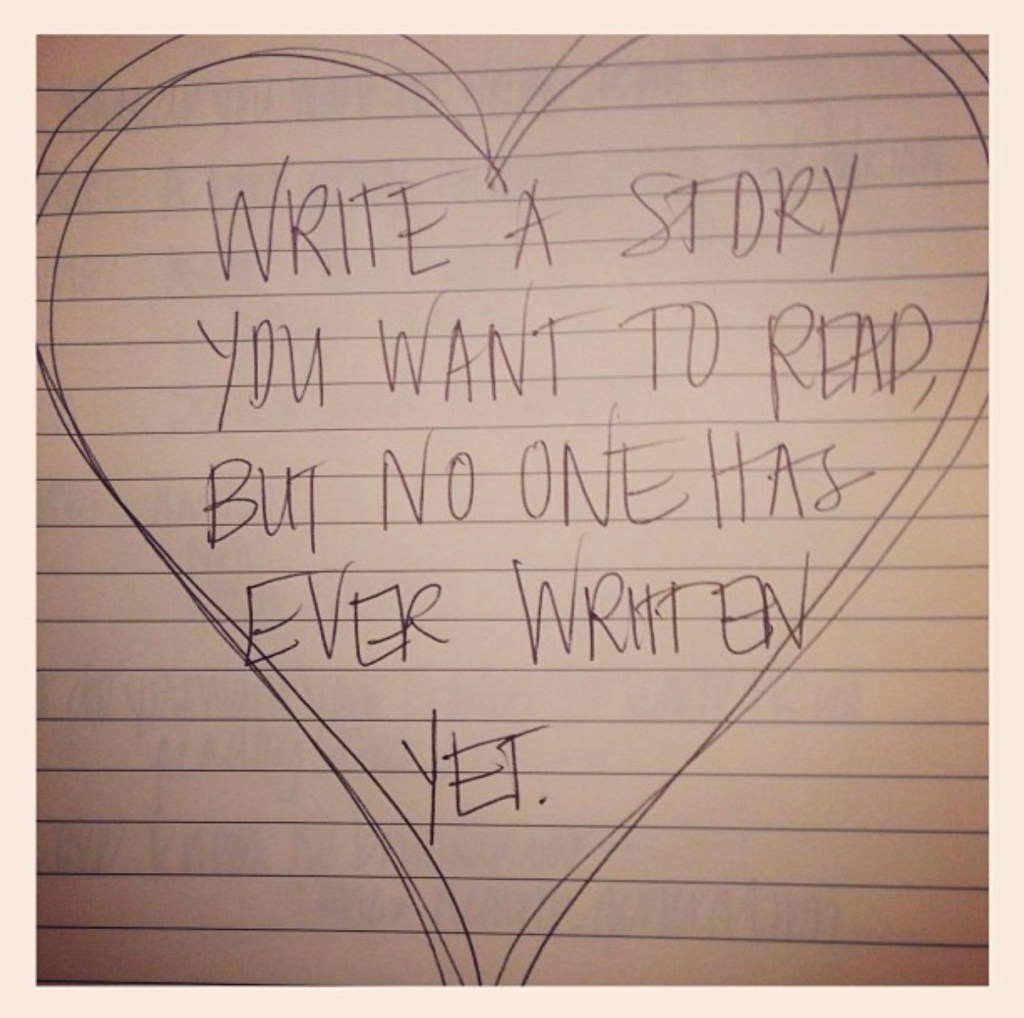 WRITE A STORY
YOU WANT TO READ,
BUT NO ONE HAS
EVER WRITTEN
YET.